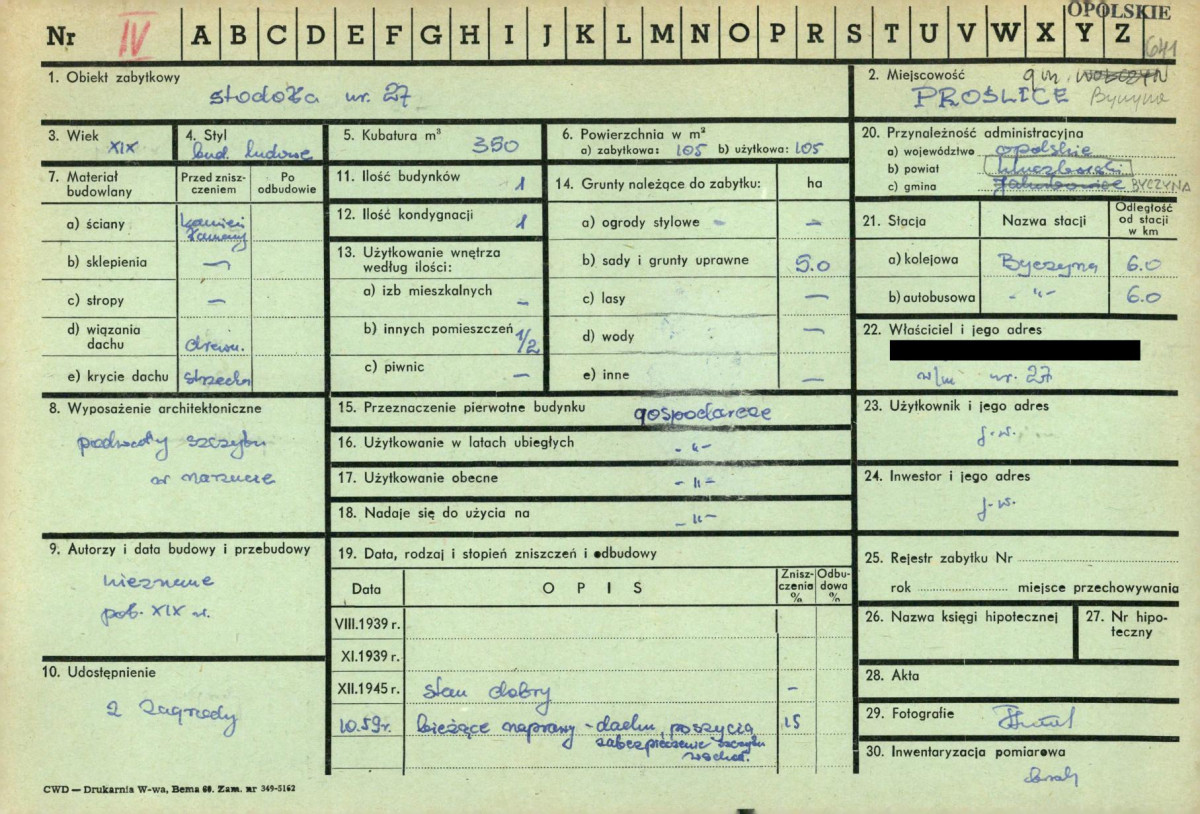 OPOLSKIE
Nr IV A B C D E F G H I J K L M N O P R S T U V W X Y Z
641
1. Obiekt zabytkowy
stodoła nr. 27
2. Miejscowość gm. Wołczyn
PROŚLICE Byczyna
3. Wiek
XIX
4. Styl
bud. ludowe
5. Kubatura m³ 350
6. Powierzchnia w m²
a) zabytkowa: 105 b) użytkowa: 105
20. Przynależność administracyjna
a) województwo opolskie
b) powiat kluczborski
c) gmina Jakubowice BYCZYNA
7. Materiał budowlany
Przed zniszczeniem
Po odbudowie
a) ściany kamień łamany
b) sklepienia —
c) stropy —
d) wiązania dachu drewn.
e) krycie dachu strzecha
11. Ilość budynków 1
12. Ilość kondygnacji 1
13. Użytkowanie wnętrza według ilości:
a) izb mieszkalnych –
b) innych pomieszczeń 1/2
c) piwnic —
14. Grunty należące do zabytku: ha
a) ogrody stylowe – —
b) sady i grunty uprawne 5.0
c) lasy —
d) wody —
e) inne —
21. Stacja
Nazwa stacji
Odległość od stacji w km
a) kolejowa Byczyna 6.0
b) autobusowa -"- 6.0
22. Właściciel i jego adres
w/m nr. 27
8. Wyposażenie architektoniczne
podwały szczytu
w narzucie
15. Przeznaczenie pierwotne budynku gospodarcze
16. Użytkowanie w latach ubiegłych -"-
17. Użytkowanie obecne -"-
18. Nadaje się do użycia na -"-
23. Użytkownik i jego adres
j.w.
24. Inwestor i jego adres
j.w.
9. Autorzy i data budowy i przebudowy
nieznane
poł. XIX w.
19. Data, rodzaj i stopień zniszczeń i odbudowy
Data
O P I S
Zniszczenia %
Odbudowa %
VIII.1939 r.
XI.1939 r.
XII.1945 r. stan dobry –
10.59r. bieżące naprawy - dachu, poszycia 15
zabezpieczenie szczytu
wschod.
25. Rejestr zabytku Nr
rok miejsce przechowywania
26. Nazwa księgi hipotecznej
27. Nr hipoteczny
10. Udostępnienie
z zagrody
28. Akta
29. Fotografie
30. Inwentaryzacja pomiarowa
brak
CWD — Drukarnia W-wa, Bema 60. Zam. nr 349-5162